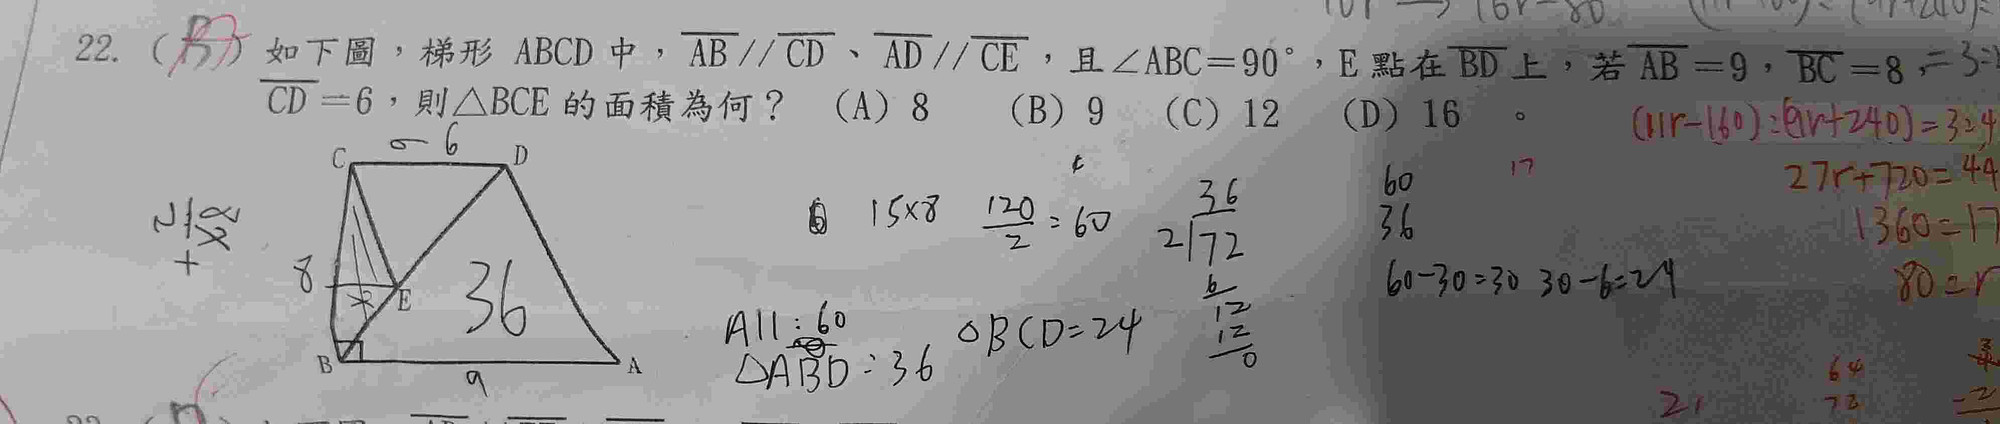 22. ( ) 如下圖，梯形 ABCD 中，AB // CD、AD // CE，且∠ABC＝90°，E 點在 BD 上，若 AB＝9，BC＝8，
CD＝6，則△BCE 的面積為何？ (A) 8 (B) 9 (C) 12 (D) 16 。
(11r-160):(9r+240)=3:4
27r+720=44
1360=17
80=r
C 6 D
8
E
36
B 9 A
15×8 120/2=60
36
2)72
6
12
12
0
60
36
17
60-30=30 30-6=24
All:60
△ABD:36
△BCD=24
64